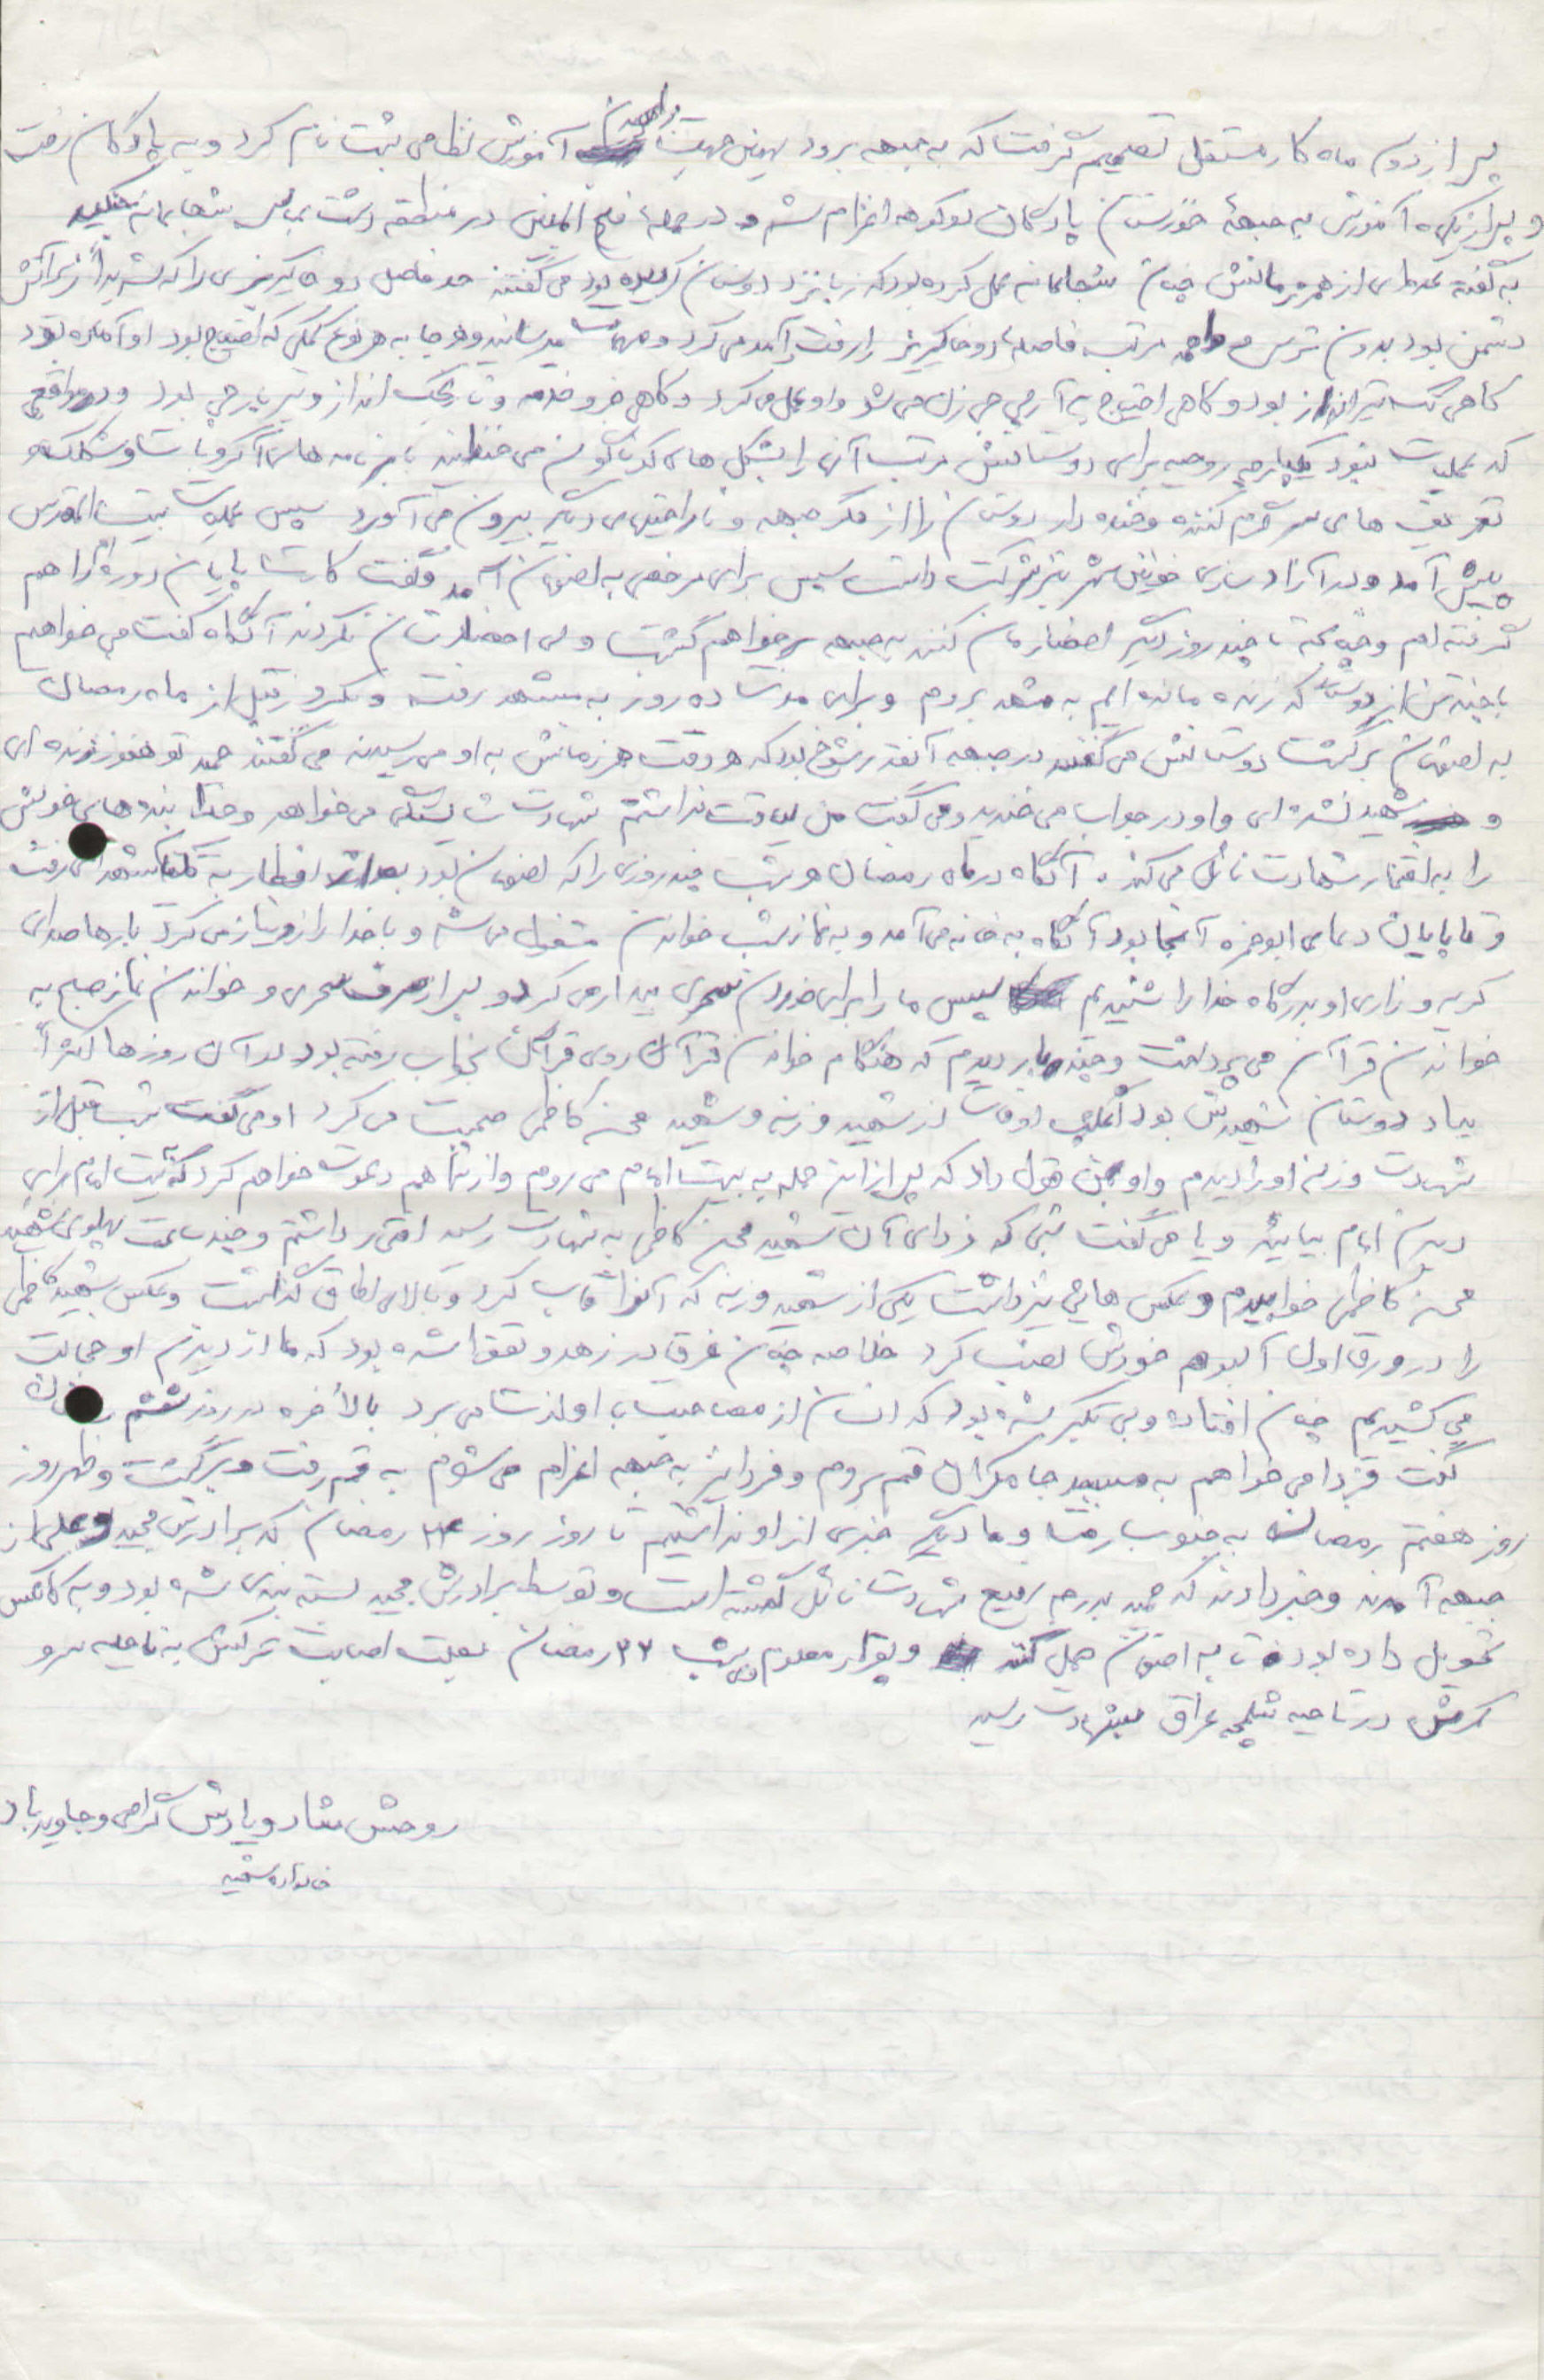 پس از دو ماه کار مستقل تصمیم گرفت که به جبهه برود بهمین جهت آموزش نظامی ثبت نام کرد و به پادگان رفت
و پس از یکماه آموزش به جبههٔ خوزستان پادگان دوکوهه اعزام شد و در حمله فتح المبین در منطقه دشت عباس شجاعانه جنگید
به گفته عده‌ای از همرزمانش چنان شجاعانه عمل کرده بود که زبانزد دوستان گردیده بود می‌گفتند حد فاصل دو خاکریزی را که شدیداً زیر آتش
دشمن بود بدون ترس و واهمه مرتب فاصله دو خاکریز را رفت و آمد می‌کرد و مهمات میرسانید و هر جا به هر نوع کمکی که احتیاج بود او آماده بود
گاهی تک تیرانداز بود و گاهی احتیاج به آرپی جی زن می‌شد و او عمل می‌کرد و گاهی جزو خدمه و تارنجک انداز و تیربارچی بود و در مواقعی
که عملیات نبود یکپارچه روحیه برای دوستانش مرتب آنان را بشکل های گوناگون می‌خندانید با برنامه های
تعریف های سرگرم کننده و خنده دار دوستان را از فکر جبهه و ناراحتیهای دیگر بیرون می‌آورد سپس عملیات بیت المقدس
پیش آمد و در آزادسازی خونین شهر نیز شرکت داشت سپس برای مرخصی به اصفهان آمد و گفت کارت پایان دوره‌ام را هم
گرفته‌ام و چنانچه تا چند روز دیگر احضارمان کنند به جبهه برخواهم گشت ولی احضارشان نکردند آنگاه گفت می‌خواهم
با چند تن از دوستان که زنده مانده ایم به مشهد بروم و برای مدت ده روز به مشهد رفت و یکروز قبل از ماه رمضان
به اصفهان برگشت دوستانش می‌گفتند در جبهه آنقدر شوخ بود که هر وقت همرزمانش به او می‌رسیدند می‌گفتند حمید تو هنوز زنده‌ای
و شهید نشده‌ای و او در جواب می‌خندید و می‌گفت من لیاقت نداشتم شهادت می‌خواهد و خدا بنده های خوبش
را به افتخار شهادت نائل می‌کند. آنگاه در ماه رمضان هر شب چند روزی را که اصفهان بود بعد از افطار به گلستان شهدا می‌رفت
و تا پایان دعای ابوحمزه آنجا بود آنگاه به خانه می‌آمد و به نماز شب خواندن مشغول می‌شد و با خدا راز و نیاز می‌کرد بارها صدای
گریه و زاری او بدرگاه خدا را شنیدیم سپس ما را برای خوردن سحری بیدار می‌کرد و پس از صرف سحری و خواندن نماز صبح به
خواندن قرآن می‌پرداخت و چند بار دیدم که هنگام خواندن قرآن روی قرآن بخواب رفته بود در آن روزها اکثراً
بیاد دوستان شهیدش بود اغلب اوقات از شهید وزنه و شهید محسن کاظمی صحبت می‌کرد او می‌گفت شب قبل از
شهادت وزنه او را دیدم و او بمن قول داد که پس از این حمله به بیت امام می‌روم و از شما هم دعوت خواهم کرد که بیت امام برای
دیدن امام بیائید و یا می‌گفت شبی که فردای آن شهید محسن کاظمی به شهادت رسید افتخار داشتم و چند ساعت پهلوی شهید
محسن کاظمی خوابیدم و عکس هایی نیز داشت یکی از شهید وزنه که آنرا قاب کرد و بالای اطاق گذاشت و عکس شهید کاظمی
را در ورق اول آلبوم خودش نصب کرد خلاصه چنان غرق در زهد و تقوا شده بود که ما از دیدن او خجالت
می‌کشیدیم چنان افتاده و بی تکبر شده بود که انسان از مصاحبت با او لذت می‌برد بالأخره در روز ششم رمضان
گفت فردا می‌خواهم به مسجد جامکران قم بروم و فردا نیز به جبهه اعزام می‌شوم به قم رفت و برگشت و ظهر روز
روز هفتم رمضان به جنوب رفت و ما دیگر خبری از او نداشتیم تا روز روز ۲۴ رمضان که برادرش مجید و علی از
جبهه آمدند و خبر دادند که حمید بدرجه رفیع شهادت نائل گشته است و توسط برادرش مجید بسته بندی شده بود و به کانکس
تحویل داده بودند تا به اصفهان حمل کنند و بقرار معلوم شب ۲۳ رمضان بعلت اصابت ترکش به ناحیه سر و
در ناحیه شلمچه عراق بشهادت رسید
روحش شاد و یادش گرامی و جاوید باد
خانواده شهید